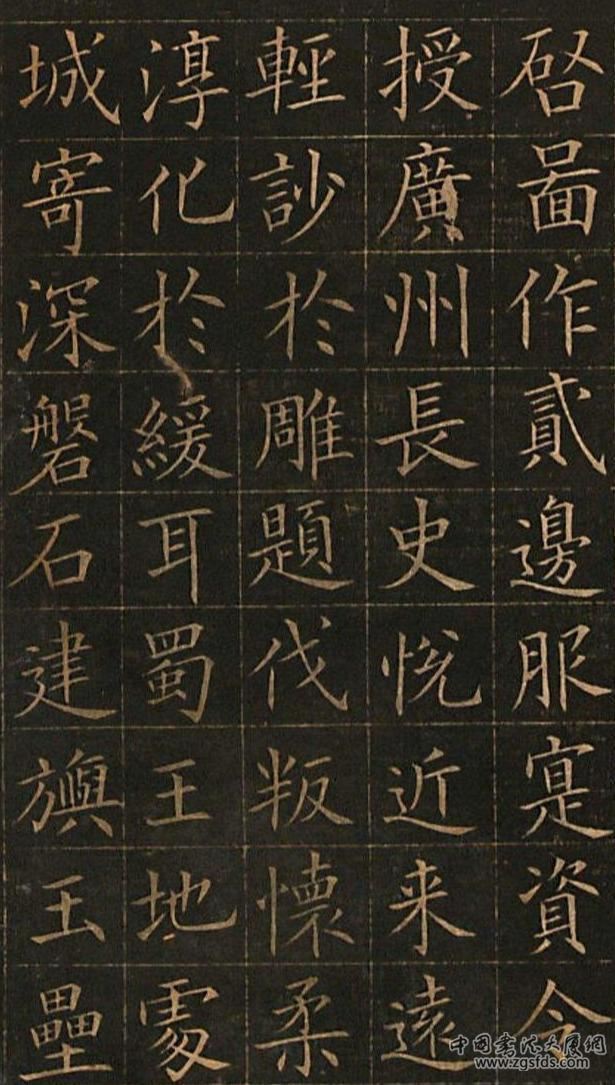 啓啚作貳邊服寔資令
授廣州長史悅近来遠
輕訬於雕題伐叛懷柔
淳化於緩耳蜀王地處
城寄深磐石建旟玉壘
中国书法大展网
www.zgsfds.com